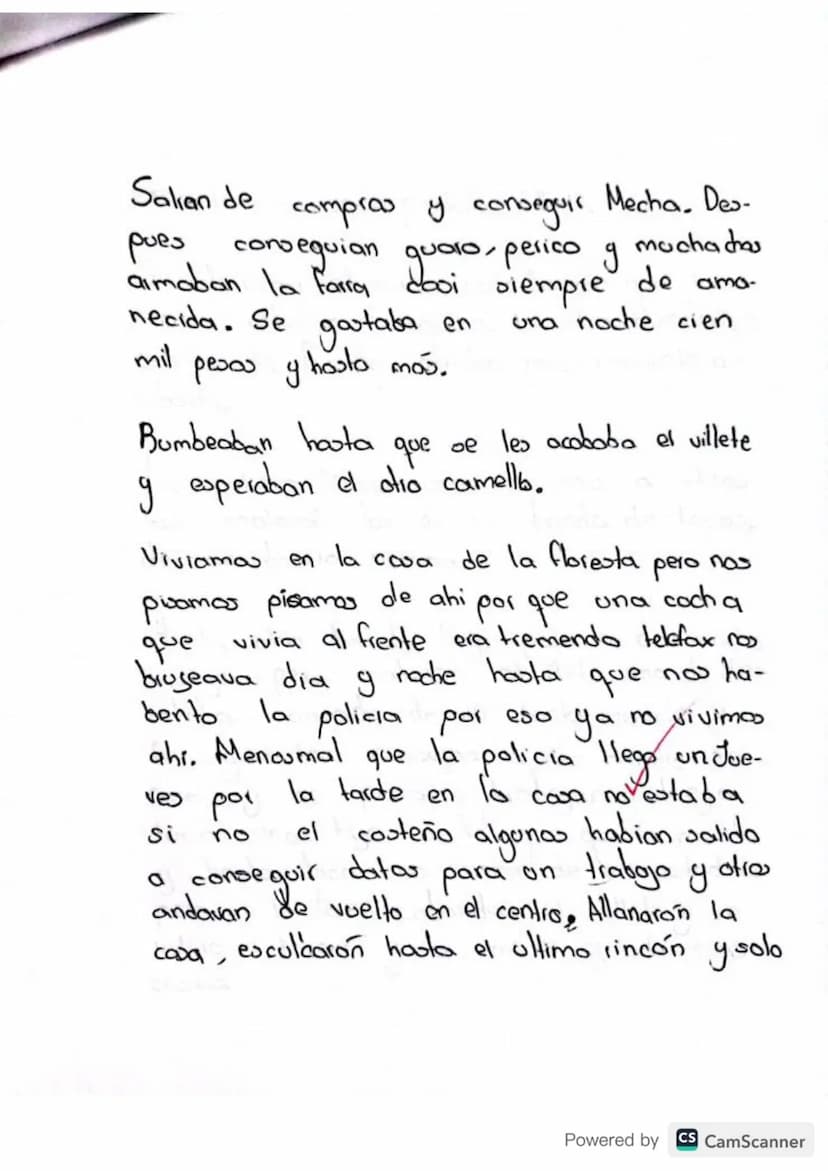 Salian de compras y conseguir Mecha. Des-
pues conseguian guaro, perico y muchachas
armaban la farra casi siempre de ama-
necida. Se gastaba en una noche cien
mil pesos y hasta más.
Rumbeaban hasta que se les acababa el villete
y esperaban el otro camello.
Viviamos en la casa de la floresta pero nos
pisamos de ahi por que una cocha
que vivia al frente era tremendo telefax nos
bruseava día y noche hasta que nos ha-
bento la policia por eso ya no vivimos
ahi. Menosmal que la policía llego un Jue-
ves por la tarde en la casa no estaba
si no el costeño algunos habian salido
a conseguir datos para un trabajo y otros
andavan de vuelto en el centro, Allanarón la
casa, esculcarón hasta el ultimo rincón y solo
Powered by CS CamScanner